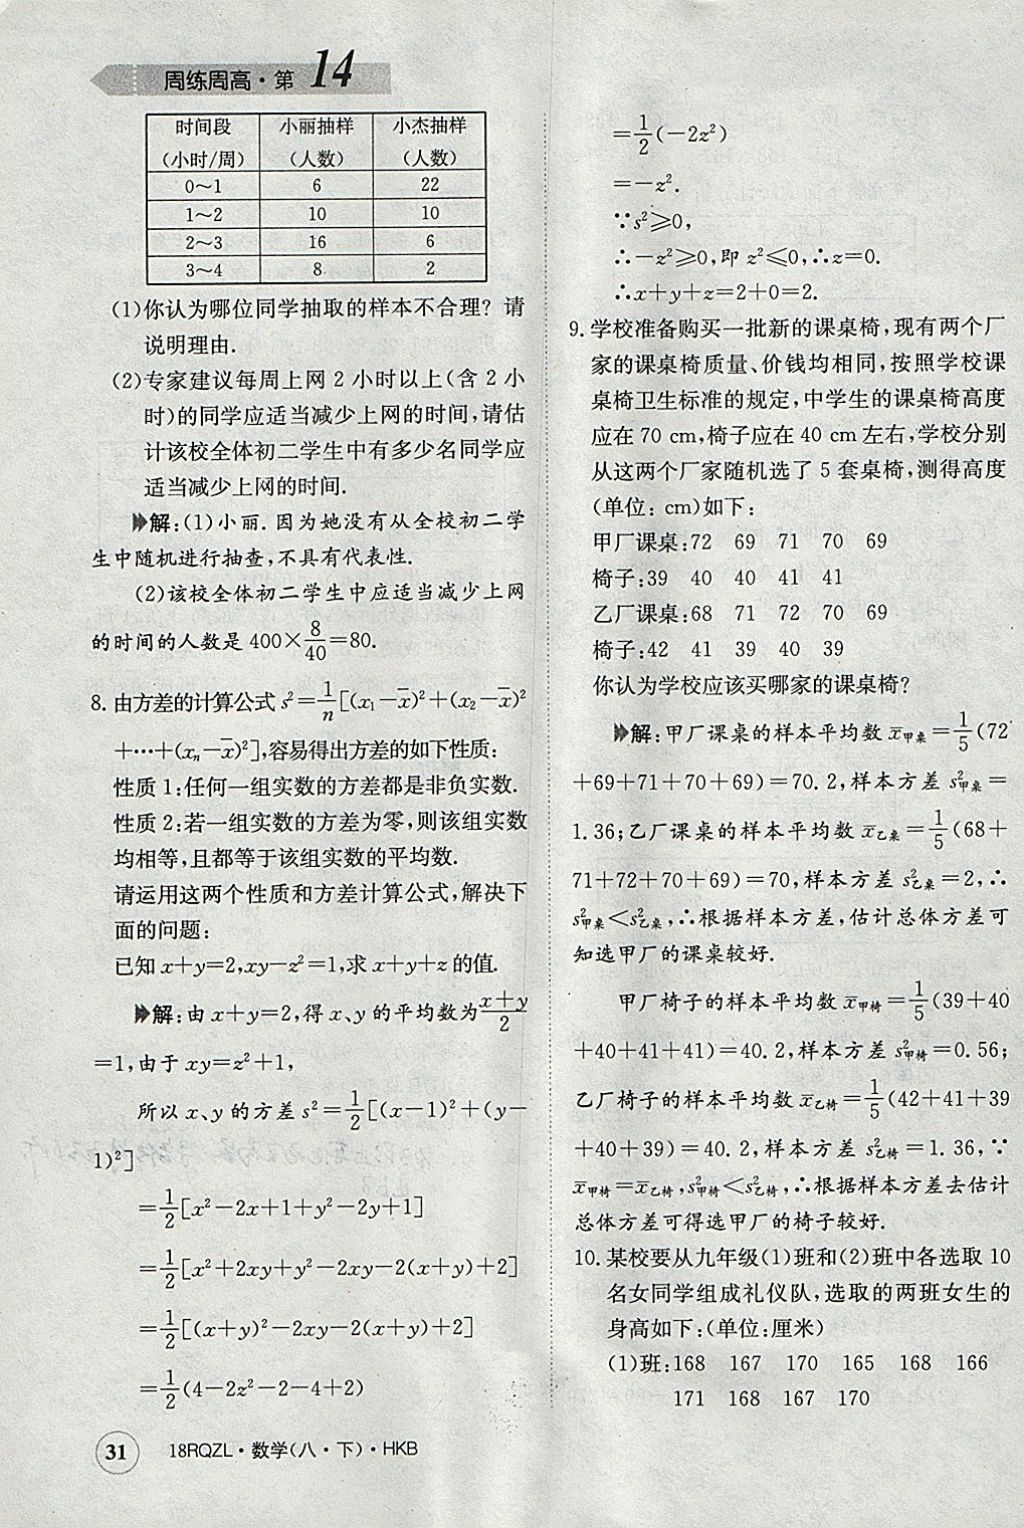 周练周高·第14
时间段 小丽抽样 小杰抽样
(小时/周) (人数) (人数)
0~1 6 22
1~2 10 10
2~3 16 6
3~4 8 2
(1)你认为哪位同学抽取的样本不合理?请
说明理由.
(2)专家建议每周上网2小时以上(含2小
时)的同学应适当减少上网的时间,请估
计该校全体初二学生中有多少名同学应
适当减少上网的时间.
解:(1)小丽.因为她没有从全校初二学
生中随机进行抽查,不具有代表性.
(2)该校全体初二学生中应适当减少上网
的时间的人数是400×8/40=80.
8. 由方差的计算公式 s²=1/n[(x₁-x̄)²+(x₂-x̄)²
+⋯+(xₙ-x̄)²],容易得出方差的如下性质:
性质1:任何一组实数的方差都是非负实数.
性质2:若一组实数的方差为零,则该组实数
均相等,且都等于该组实数的平均数.
请运用这两个性质和方差计算公式,解决下
面的问题:
已知x+y=2,xy-z²=1,求x+y+z的值.
解:由x+y=2,得x、y的平均数为(x+y)/2
=1,由于xy=z²+1,
所以x、y的方差s²=1/2[(x-1)²+(y-
1)²]
=1/2[x²-2x+1+y²-2y+1]
=1/2[x²+2xy+y²-2xy-2(x+y)+2]
=1/2[(x+y)²-2xy-2(x+y)+2]
=1/2(4-2z²-2-4+2)
31 18RQZL·数学(八·下)·HKB
=1/2(-2z²)
=-z².
∵s²≥0,
∴-z²≥0,即z²≤0,∴z=0.
∴x+y+z=2+0=2.
9. 学校准备购买一批新的课桌椅,现有两个厂
家的课桌椅质量、价钱均相同,按照学校课
桌椅卫生标准的规定,中学生的课桌椅高度
应在70 cm,椅子应在40 cm左右,学校分别
从这两个厂家随机选了5套桌椅,测得高度
(单位:cm)如下:
甲厂课桌:72 69 71 70 69
椅子:39 40 40 41 41
乙厂课桌:68 71 72 70 69
椅子:42 41 39 40 39
你认为学校应该买哪家的课桌椅?
解:甲厂课桌的样本平均数x̄甲桌=1/5(72
+69+71+70+69)=70.2,样本方差s²甲桌=
1.36;乙厂课桌的样本平均数x̄乙桌=1/5(68+
71+72+70+69)=70,样本方差s²乙桌=2,∴
s²甲桌<s²乙桌,∴根据样本方差,估计总体方差可
知选甲厂的课桌较好.
甲厂椅子的样本平均数x̄甲椅=1/5(39+40
+40+41+41)=40.2,样本方差s²甲椅=0.56;
乙厂椅子的样本平均数x̄乙椅=1/5(42+41+39
+40+39)=40.2,样本方差s²乙椅=1.36,∵
x̄甲椅=x̄乙椅,s²甲椅<s²乙椅,∴根据样本方差去估计
总体方差可得选甲厂的椅子较好.
10. 某校要从九年级(1)班和(2)班中各选取10
名女同学组成礼仪队,选取的两班女生的
身高如下:(单位:厘米)
(1)班:168 167 170 165 168 166
171 168 167 170